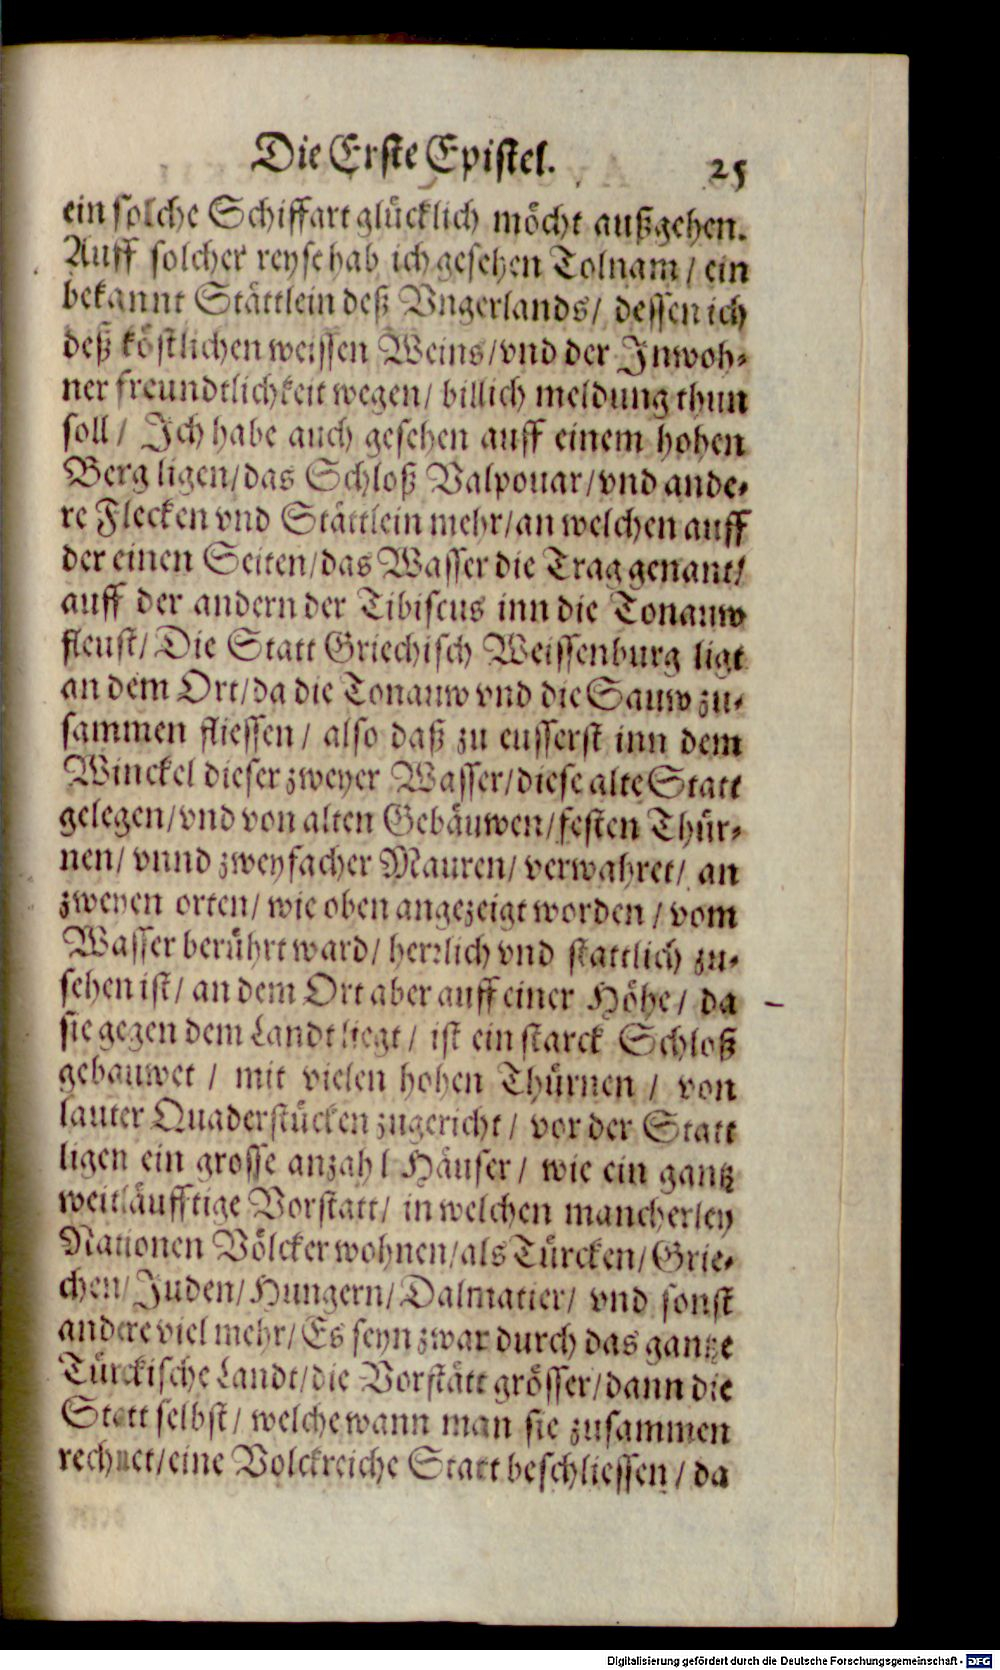 Die Erste Epistel. 25
ein solche Schiffart glücklich möcht außgehen.
Auff solcher reyse hab ich gesehen Tolnam / ein
bekannt Stättlein deß Vngerlands / dessen ich
deß köstlichen weissen Weins / vnd der Inwoh-
ner freundtlichkeit wegen / billich meldung thun
soll / Ich habe auch gesehen auff einem hohen
Berg ligen / das Schloß Valpouar / vnd ande-
re Flecken vnd Stättlein mehr / an welchen auff
der einen Seiten / das Wasser die Trag genant /
auff der andern der Tibiscus inn die Tonauw
fleust / Die Statt Griechisch Weissenburg ligt
an dem Ort / da die Tonauw vnd die Sauw zu-
sammen fliessen / also daß zu eusserst inn dem
Winckel dieser zweyer Wasser / diese alte Statt
gelegen / vnd von alten Gebäuwen / festen Thür-
nen / vnnd zweyfacher Mauren / verwahret / an
zweyen orten / wie oben angezeigt worden / vom
Wasser berührt ward / herrlich vnd stattlich zu-
sehen ist / an dem Ort aber auff einer Höhe / da
sie gegen dem Landt liegt / ist ein starck Schloß
gebauwet / mit vielen hohen Thürnen / von
lauter Quaderstücken zugericht / vor der Statt
ligen ein grosse anzahl Häuser / wie ein gantz
weitläufftige Vorstatt / in welchen mancherley
Nationen Völcker wohnen / als Türcken / Grie-
chen / Juden / Hungern / Dalmatier / vnd sonst
andere viel mehr / Es seyn zwar durch das gantze
Türckische Landt / die Vorstätt grösser / dann die
Statt selbst / welche wann man sie zusammen
rechnet / eine Volckreiche Statt beschliessen / da
Digitalisierung gefördert durch die Deutsche Forschungsgemeinschaft - DFG